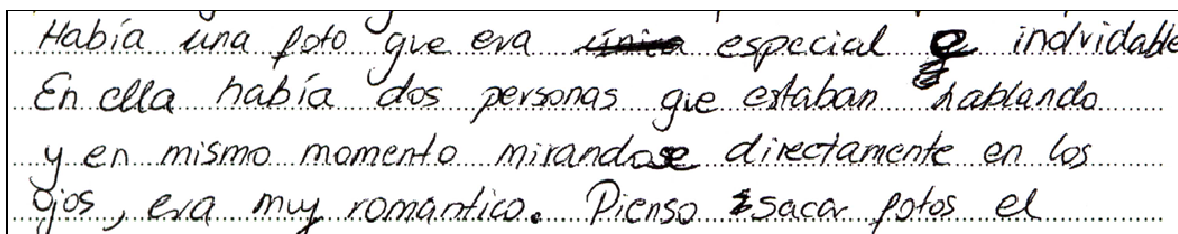 Había una foto que era única especial e inolvidable
En ella había dos personas que estaban hablando
y en mismo momento mirandose directamente en los
ojos, era muy romantico. Pienso sacar fotos el